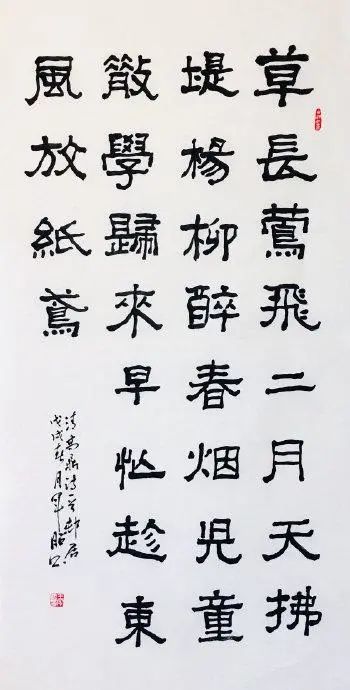 草長鶯飛二月天拂
堤楊柳醉春烟兒童
散學歸來早忙趁東
風放紙鳶
清高鼎詩邨居
戊戌春月